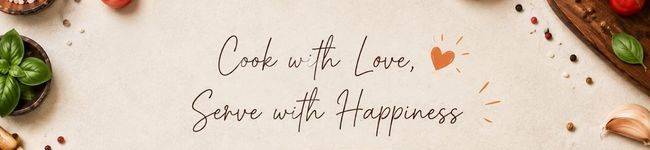 Cook with Love,
Serve with Happiness